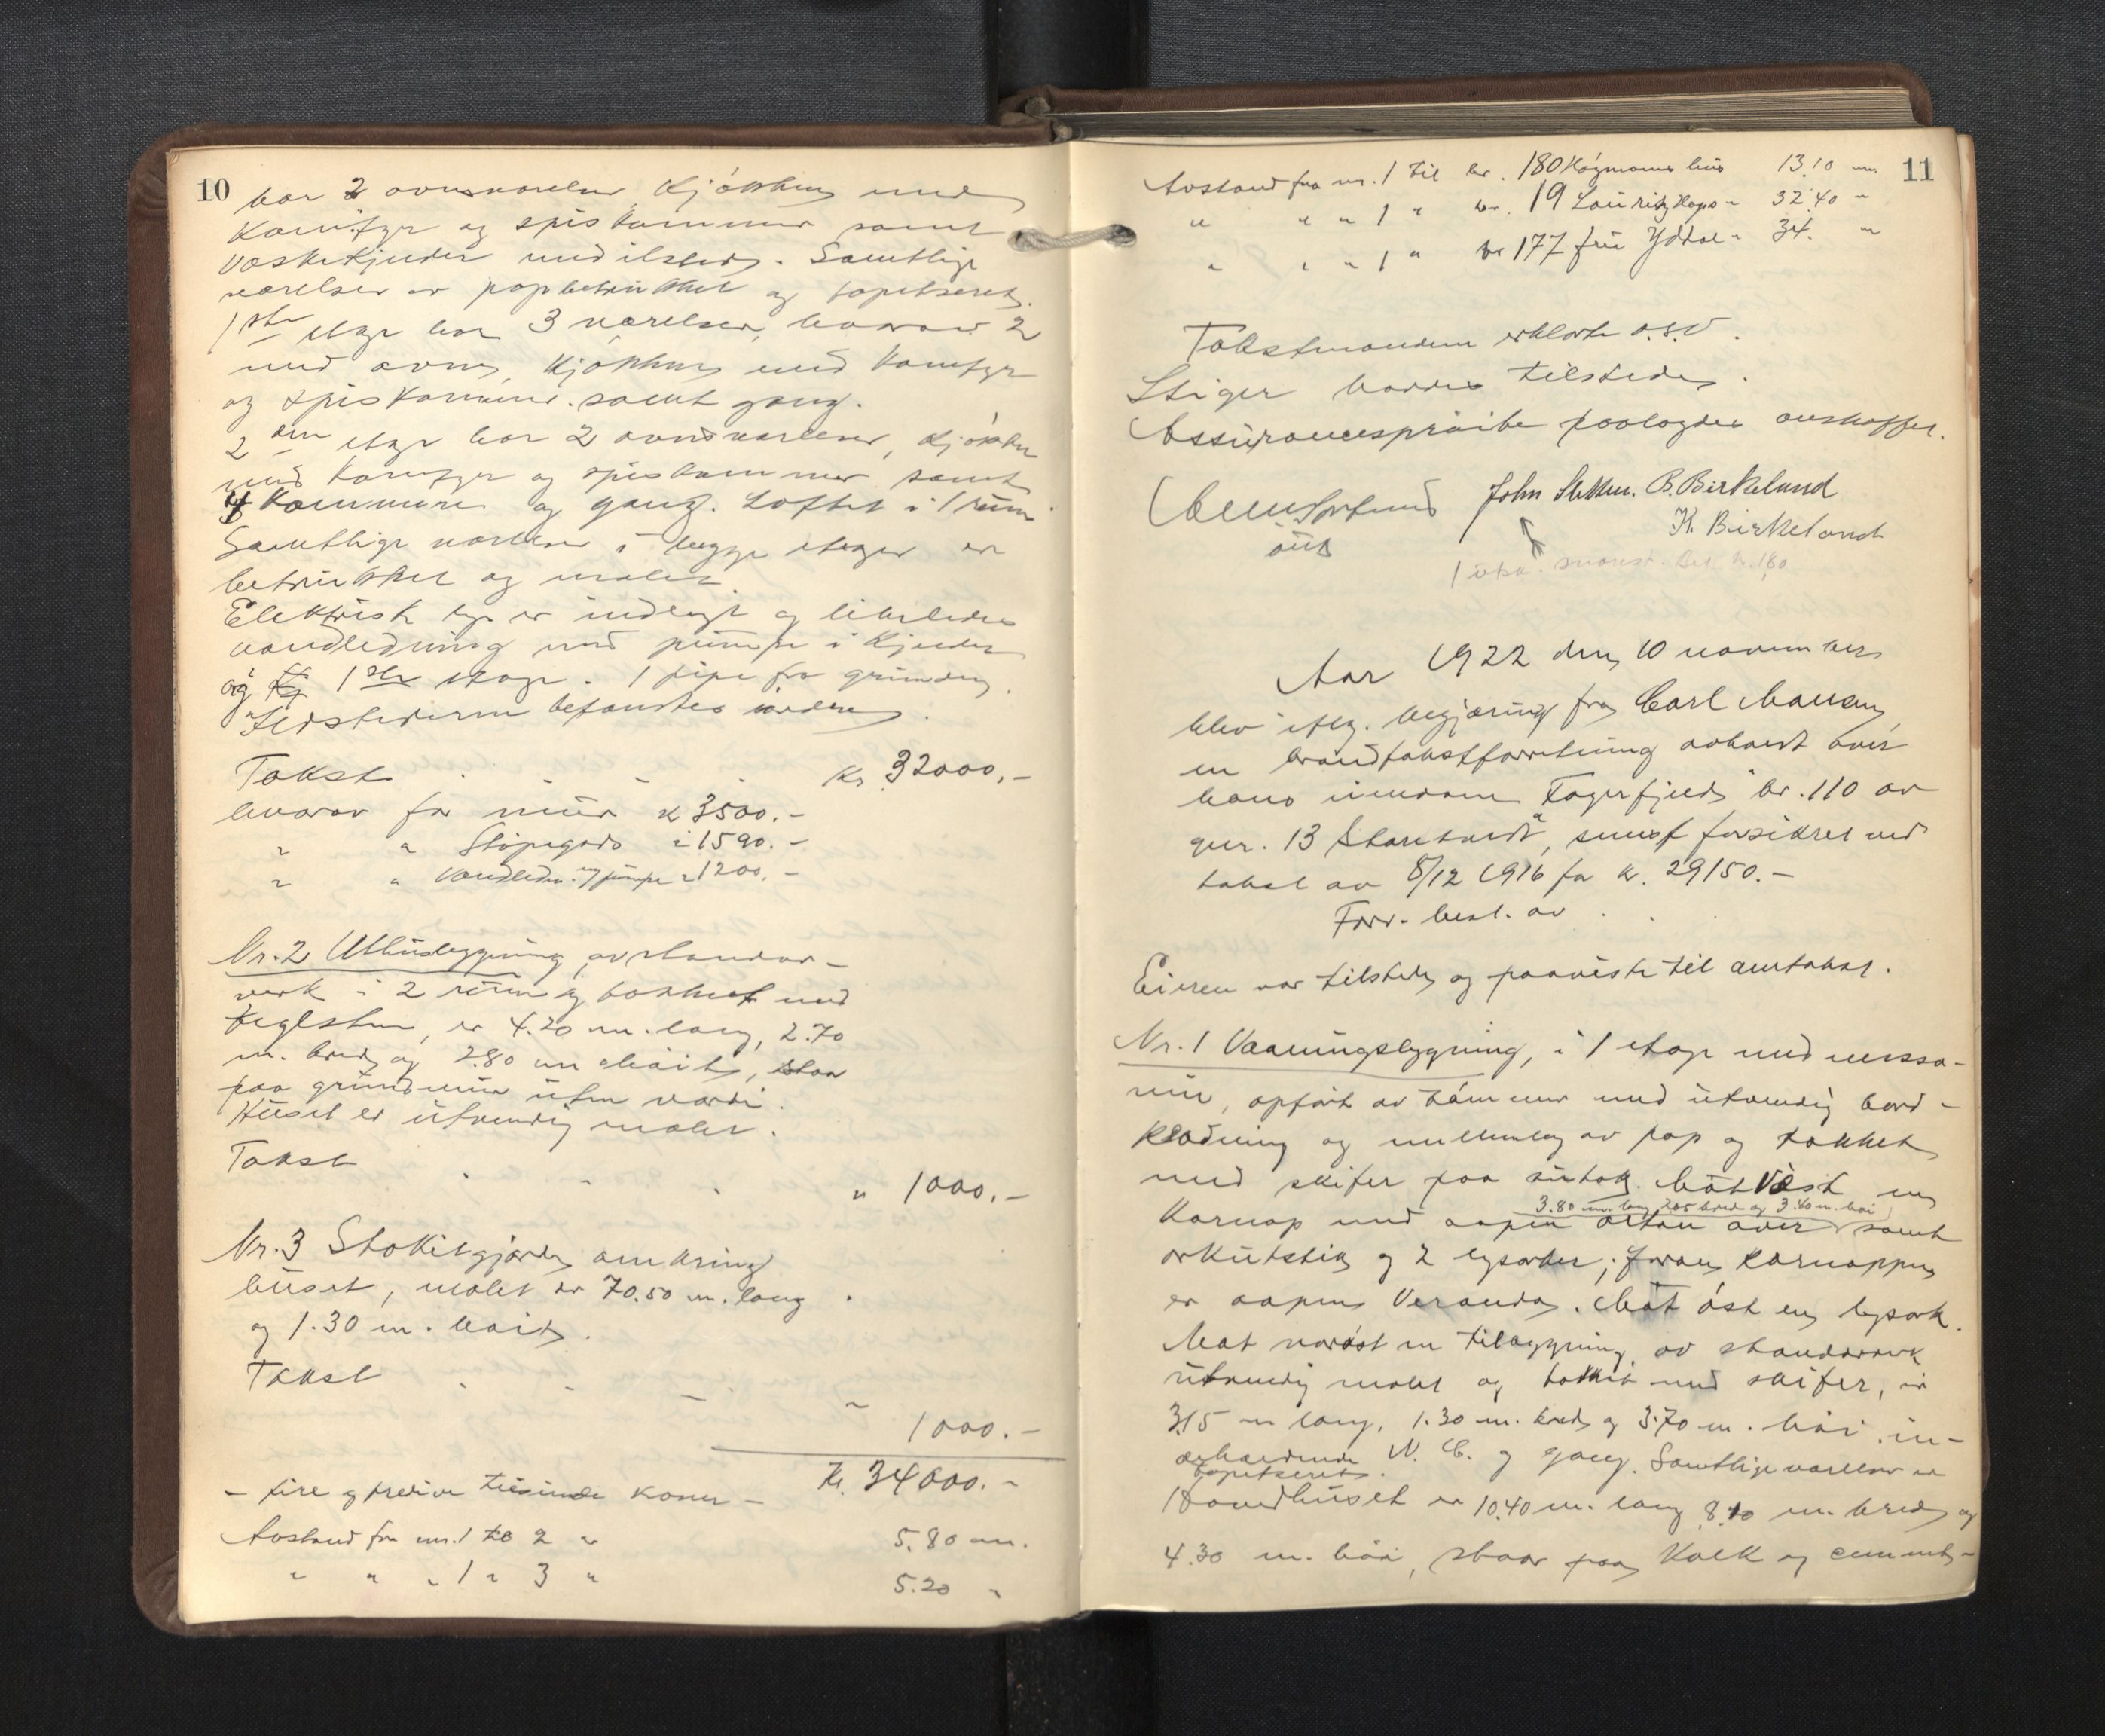 10
har 2 ovnsværelser, Kjøkken med
Komfyr og spiskammer samt
Vaskekjelder med ilsted. Samtlige
værelser er papbetrukket og tapetseret.
1ste etage har 3 værelser, hvorav 2
med ovn, Kjøkken med Komfyr
og Spiskammer samt gang.
2den etage har 2 ovnsværelser, Kjøkken
med Komfyr og spiskammer samt
4 Kammere og gang. Loftet i 1 rum.
Samtlige værelser i begge etager er
betrukket og malet
Elektrisk lys er indlagt og likeledes
vandledning med pumpe i Kjelder
og 1ste etage. 1 pipe fra grunden.
Ildstederne befandtes i orden.
Takst kr. 32000,-
hvorav for mur kr 3500.-
" " Støpegods " 1590.-
" " Vandledn. og pumpe " 1200,-
Nr. 2 Uthusbygning av standar-
verk i 2 rum og tækket med
teglsten, er 4.20 m. lang, 2.70
m. bred og 2.80 m høit, staar
paa grundmur uten værdi.
Huset er utvendig malet.
Takst " 1000.-
Nr. 3 Stakitgjærde omkring
huset, malet er 70.50 m. lang
og 1.30 m. høit.
Takst " 1000.-
- fire og tredive tusinde kroner - Kr. 34000.-
Avstand fra nr. 1 til 2 " 5.80 m.
" " " 1 " 3 " 5.20 "
11
Avstand fra nr. 1 til br. 180 Høgmanns hus 13.10 m.
" " " 1 " br. 19 Lauritz Hops " 32.40 "
" " " 1 " br 177 fru Yddal " 34. "
Takstmændene erklærte o.s.v.
Stiger havdes tilstede.
Assurancesprøite paalagdes anskaffet.
John Sletten. B. Birkeland
K. Birkeland
1 utsk.
Aar 1922 den 10 november
blev efter begjæring fra Carl Hansen
en brandtakstforretning avholdt over
hans eiendom "Fagerfjeld" br. 110 av
gnr. 13 Starehardt, senest forsikret ved
takst av 8/12 1916 for kr. 29150.-
Forr. best. av . .
Eieren var tilstede og paaviste til omtakst.
Nr. 1 Vaaningsbygning, i 1 etage med messa-
nin, opført av tømmer med utvendig bord-
klædning og mellemlag av pap og tækket
med skifer paa sutak. Mot Vest en
3.80 m. lang 2.05 bred og 3.40 m. høi
Karnap med aapen altan over samt
arkutstik og 2 lysarker; foran karnappen
er aapen Veranda. Mot øst en lysark.
Mot nordøst en tilbygning av standerverk
utvendig malet og tækket med skifer, er
3.15 m lang, 1.30 m. bred og 3.70 m. høi, in-
deholdende W. C. og gang. Samtlige værelser er
tapetseret.
Hovedhuset er 10.40 m. lang 8.10 m. bred og
4.30 m. høi, staar paa Kalk og cement-